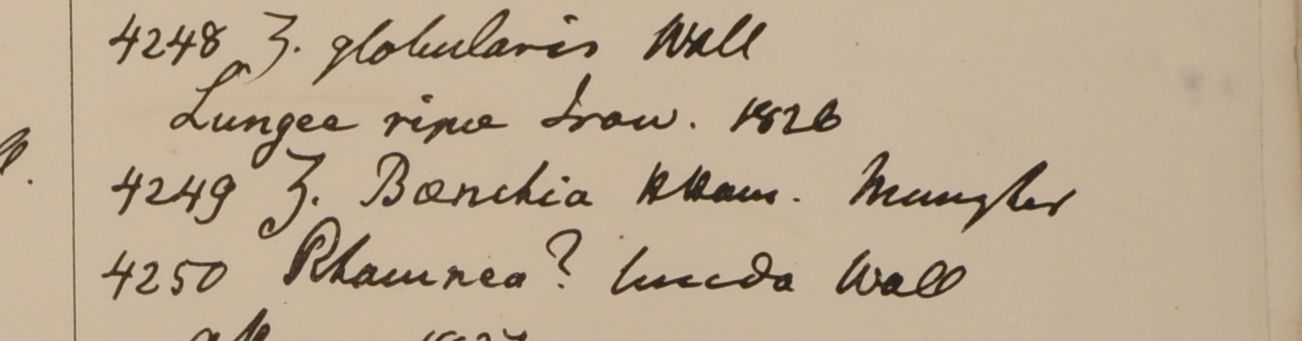 4248 Z. globularis Wall
Lungee ripa Iraw. 1826
4249 Z. Bænchia HHam. Mungher
4250 Rhamnea? lucida Wall